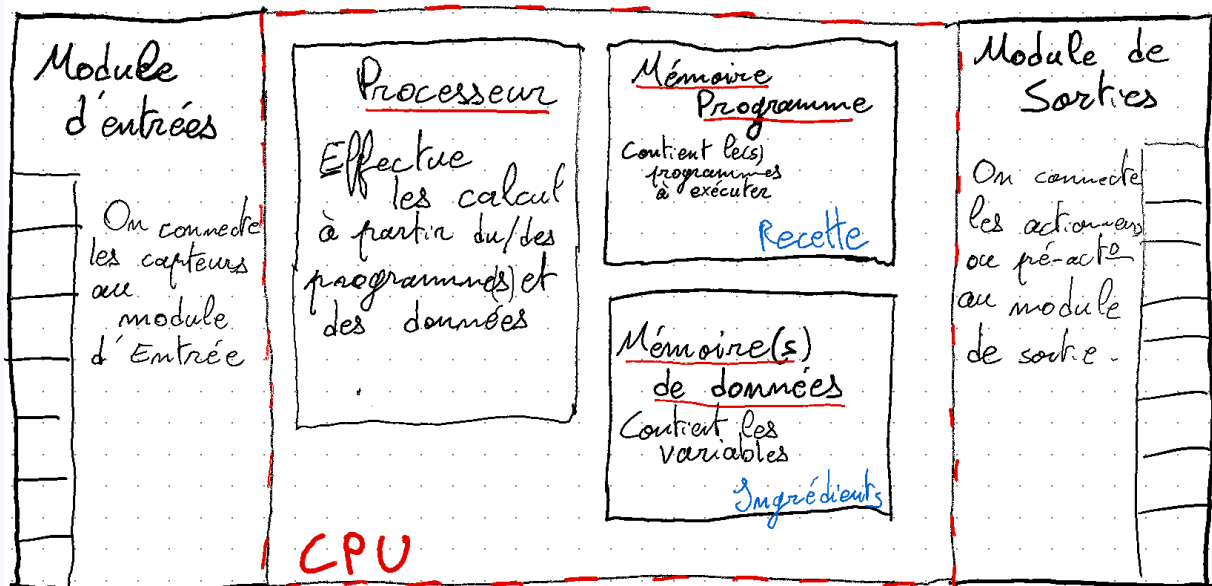 Module
d'entrées
On connecte
les capteurs
au
module
d'Entrée
Processeur
Effectue
les calcul
à partir du/des
programme(s) et
des données
Mémoire
Programme
Contient le(s)
programmes
à exécuter
Recette
Mémoire(s)
de données
Contient les
variables
Ingrédients
CPU
Module de
Sorties
On connecte
les actionneurs
ou pré-acto
au module
de sortie.